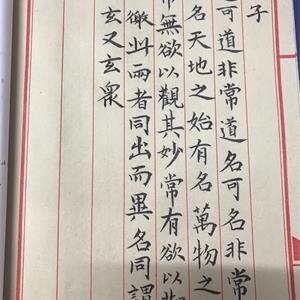 子
可道非常道名可名非常
名天地之始有名萬物之
無欲以觀其妙常有欲以
徼此兩者同出而異名同謂
玄又玄眾